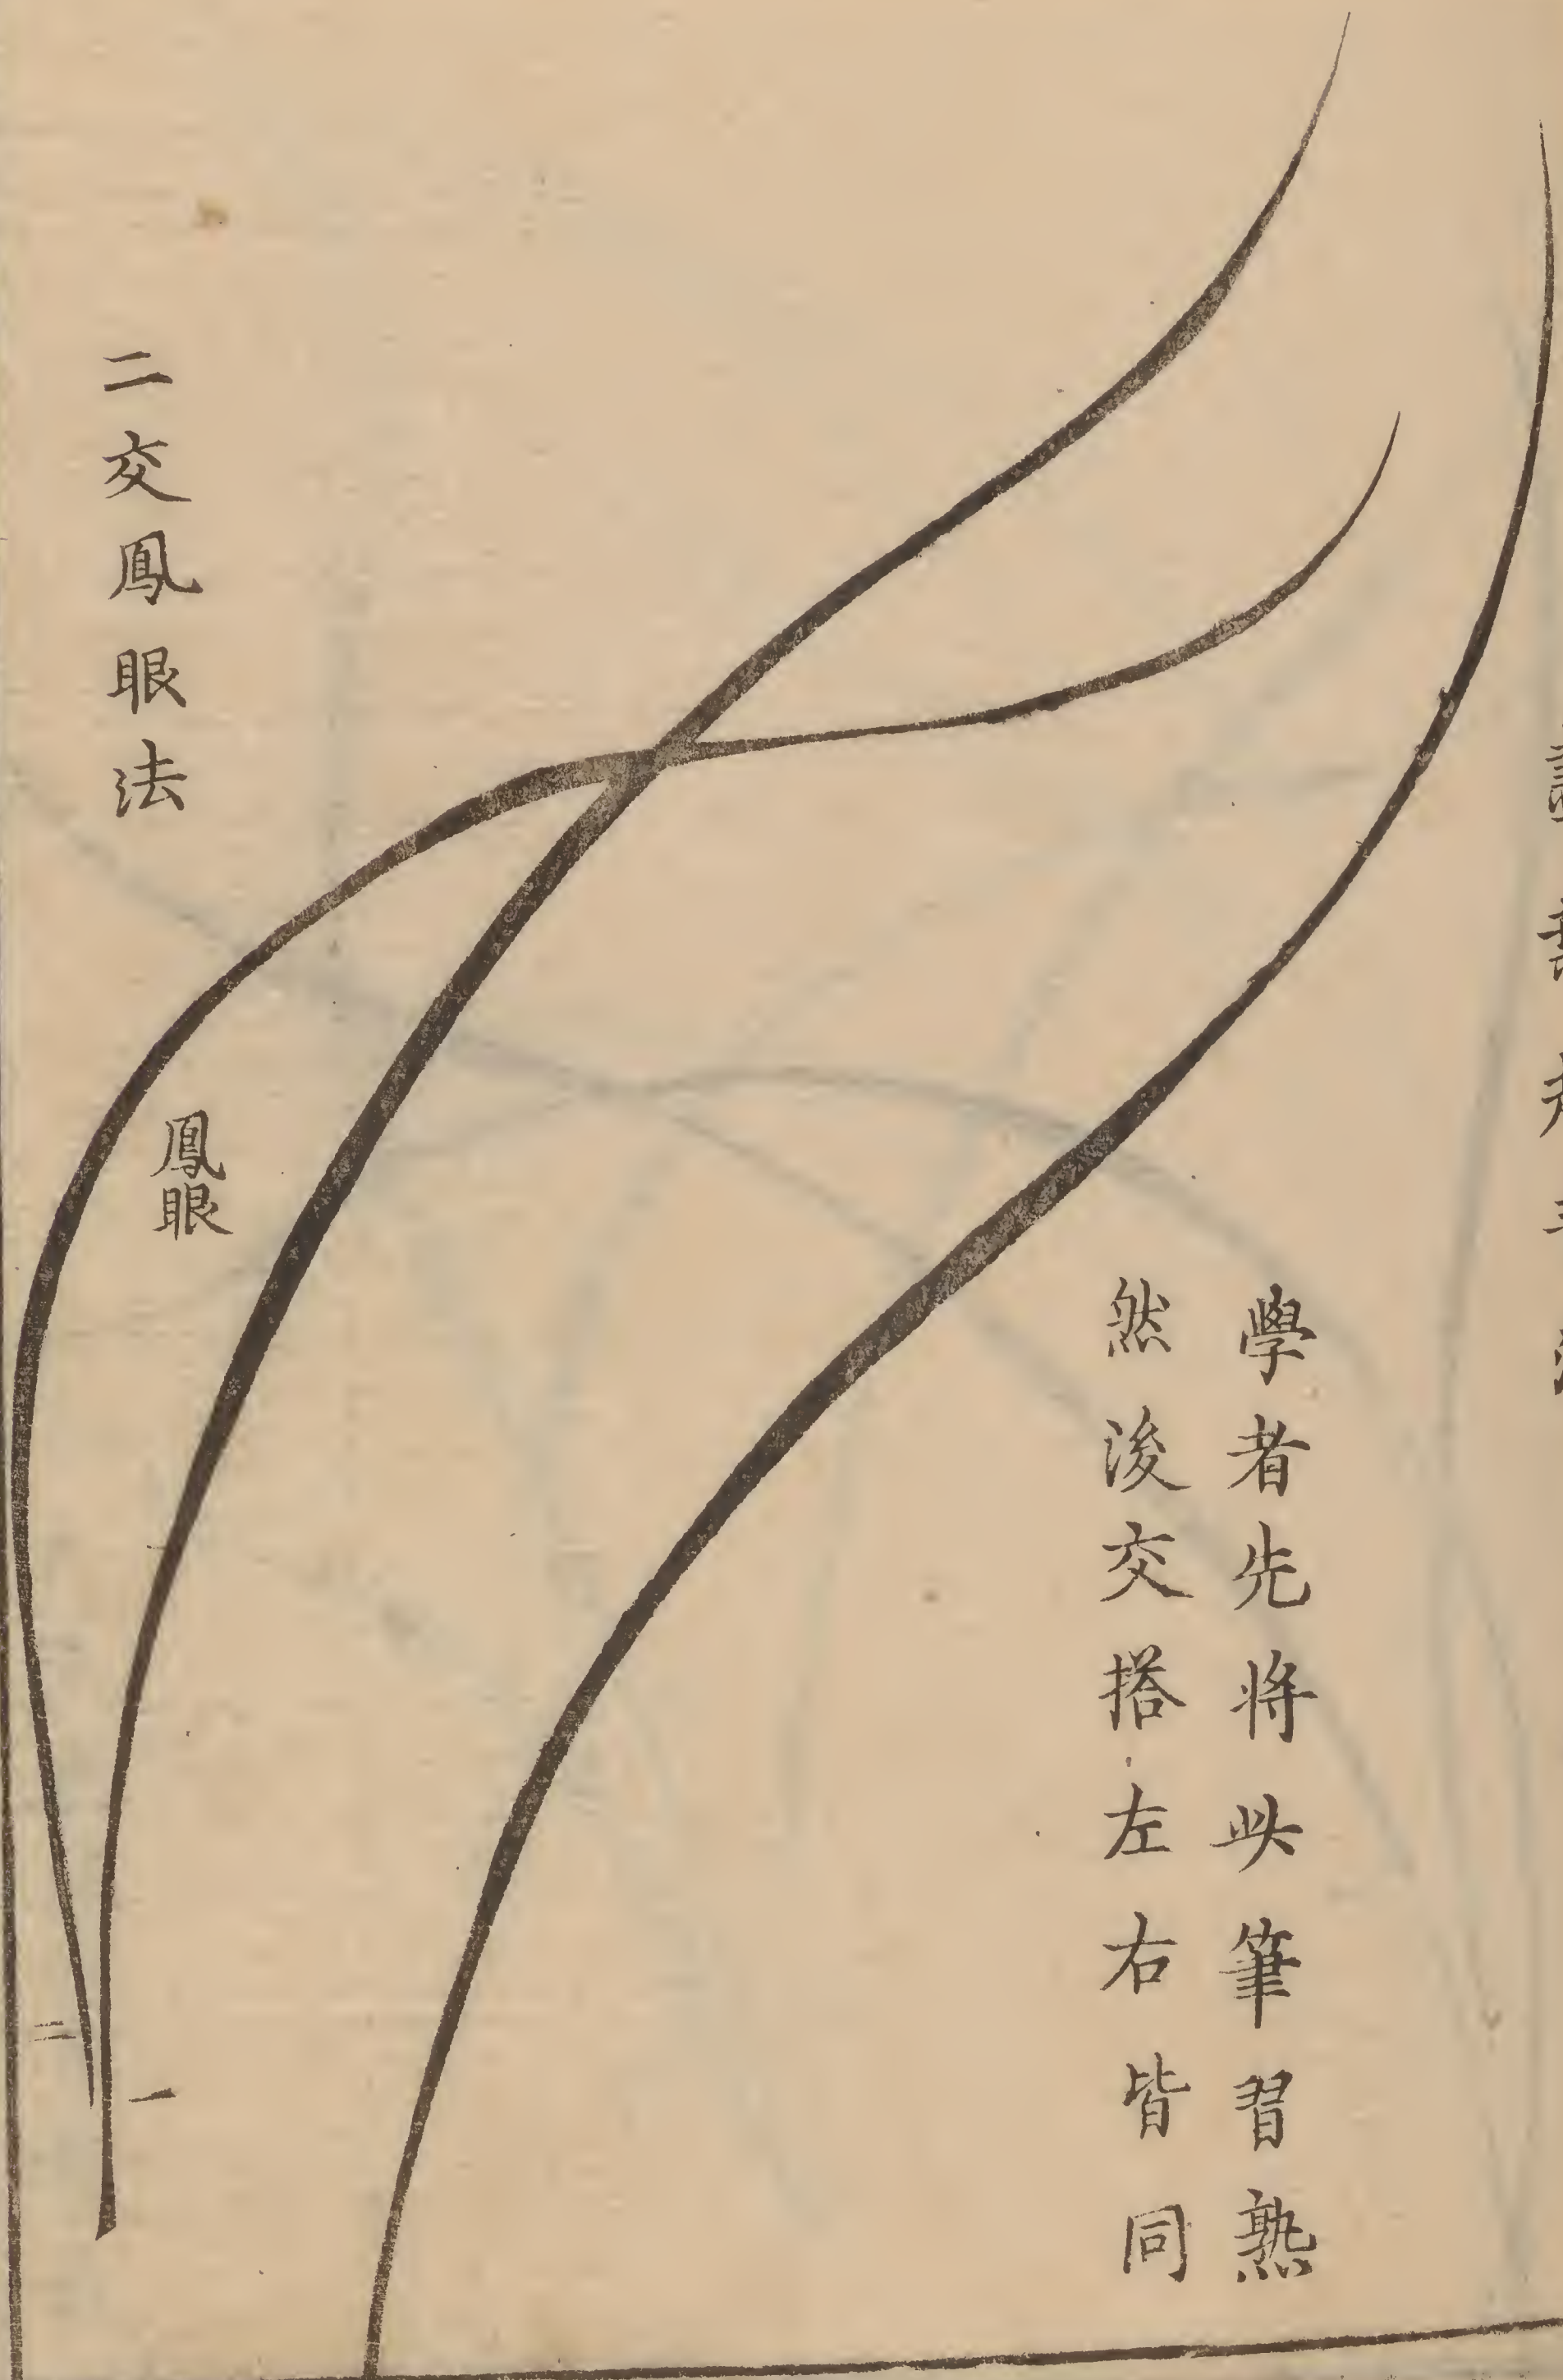 學者先將此筆習熟
然後交搭左右皆同
二交鳳眼法
鳳眼
一
二